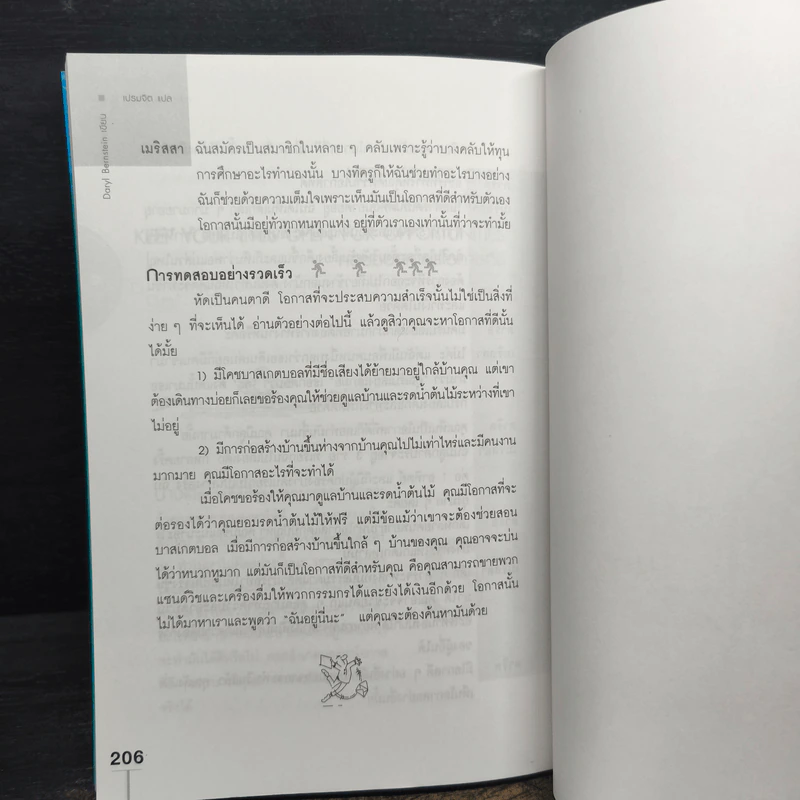 เปรมจิต แปล
Daryl Bernstein เขียน
เมริสสา ฉันสมัครเป็นสมาชิกในหลาย ๆ คลับเพราะรู้ว่าบางคลับให้ทุน
การศึกษาอะไรทำนองนั้น บางทีครูก็ให้ฉันช่วยทำอะไรบางอย่าง
ฉันก็ช่วยด้วยความเต็มใจเพราะเห็นมันเป็นโอกาสที่ดีสำหรับตัวเอง
โอกาสนั้นมีอยู่ทั่วทุกหนทุกแห่ง อยู่ที่ตัวเราเองเท่านั้นที่ว่าจะทำมั้ย
การทดสอบอย่างรวดเร็ว
หัดเป็นคนตาดี โอกาสที่จะประสบความสำเร็จนั้นไม่ใช่เป็นสิ่งที่
ง่าย ๆ ที่จะเห็นได้ อ่านตัวอย่างต่อไปนี้ แล้วดูสิว่าคุณจะหาโอกาสที่ดีนั้น
ได้มั้ย
1) มีโคชบาสเกตบอลที่มีชื่อเสียงได้ย้ายมาอยู่ใกล้บ้านคุณ แต่เขา
ต้องเดินทางบ่อยก็เลยขอร้องคุณให้ช่วยดูแลบ้านและรดน้ำต้นไม้ระหว่างที่เขา
ไม่อยู่
2) มีการก่อสร้างบ้านขึ้นห่างจากบ้านคุณไปไม่เท่าไหร่และมีคนงาน
มากมาย คุณมีโอกาสอะไรที่จะทำได้
เมื่อโคชขอร้องให้คุณมาดูแลบ้านและรดน้ำต้นไม้ คุณมีโอกาสที่จะ
ต่อรองได้ว่าคุณยอมรดน้ำต้นไม้ให้ฟรี แต่มีข้อแม้ว่าเขาจะต้องช่วยสอน
บาสเกตบอล เมื่อมีการก่อสร้างบ้านขึ้นใกล้ ๆ บ้านของคุณ คุณอาจจะบ่น
ได้ว่าหนวกหูมาก แต่มันก็เป็นโอกาสที่ดีสำหรับคุณ คือคุณสามารถขายพวก
แซนด์วิชและเครื่องดื่มให้พวกกรรมกรได้และยังได้เงินอีกด้วย โอกาสนั้น
ไม่ได้มาหาเราและพูดว่า "ฉันอยู่นี่นะ" แต่คุณจะต้องค้นหามันด้วย
206